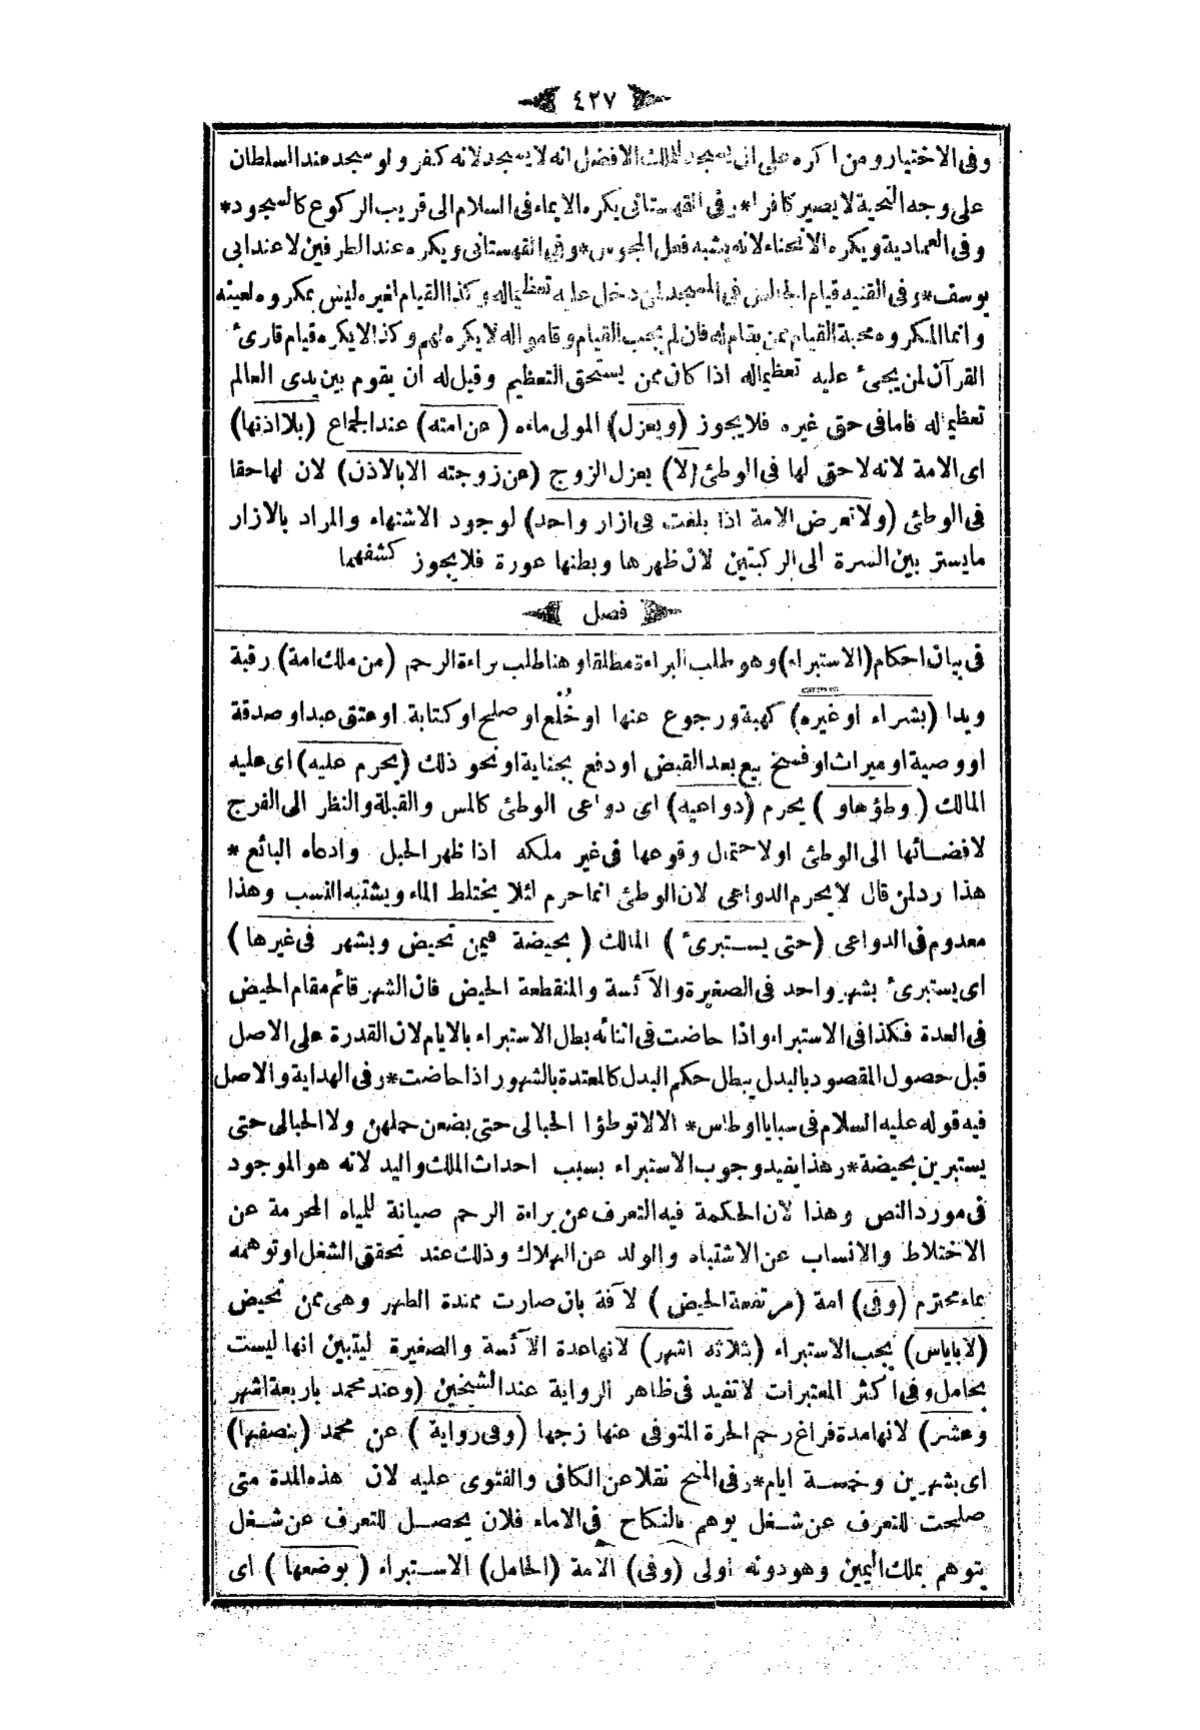 ٤٢٧
وفى الاختيار ومن اكره على ان يسجد للملك الافضل انه لا يسجد لانه كفر ولو سجد عند السلطان
على وجه التحية لا يصير كافرا * وفى القهستانى يكره الايماء فى السلام الى قريب الركوع كالسجود *
وفى العمادية ويكره الانحناء لانه يشبه فعل المجوس * وفى القهستانى ويكره عند الطرفين لا عند ابى
يوسف * وفى القنيه قيام الجالس فى المسجد لمن دخل عليه تعظيما له وكذا القيام لغيره ليس بمكروه لعينه
وانما المكروه محبة القيام ممن يقام له فان لم يحب القيام وقاموا له لا يكره لهم وكذا لا يكره قيام قارئ
القرآن لمن يجىء عليه تعظيما له اذا كان ممن يستحق التعظيم وقيل له ان يقوم بين يدى العالم
تعظيما له فاما فى حق غيره فلا يجوز (ويعزل) المولى ماءه (عن امته) عند الجماع (بلا اذنها)
اى الامة لانه لا حق لها فى الوطئ (لا) يعزل الزوج (عن زوجته الا بالاذن) لان لها حقا
فى الوطئ (ولا تعرض الامة اذا بلغت فى ازار واحد) لوجود الاشتهاء والمراد بالازار
ما يستر بين السرة الى الركبتين لان ظهرها وبطنها عورة فلا يجوز كشفهما
فصل
فى بيان احكام (الاستبراء) وهو طلب البراءة مطلقا وهنا طلب براءة الرحم (من ملك امة) رقبة
ويدا (بشراء او غيره) كهبة ورجوع عنها او خُلع او صلح او كتابة او عتق عبد او صدقة
او وصية او ميراث او فسخ بيع بعد القبض او دفع بجناية او نحو ذلك (يحرم عليه) اى عليه
المالك (وطؤها و) يحرم (دواعيه) اى دواعى الوطئ كالمس والقبلة والنظر الى الفرج
لافضائها الى الوطئ او لاحتمال وقوعها فى غير ملكه اذا ظهر الحبل وادعاه البائع *
هذا رد لمن قال لا يحرم الدواعى لان الوطئ انما حرم لئلا يختلط الماء ويشتبه النسب وهذا
معدوم فى الدواعى (حتى يستبرئ) المالك (بحيضة فيمن تحيض وبشهر فى غيرها)
اى يستبرئ بشهر واحد فى الصغيرة والآئسة والمنقطعة الحيض فان الشهر قائم مقام الحيض
فى العدة فكذا فى الاستبراء واذا حاضت فى اثنائه بطل الاستبراء بالايام لان القدرة على الاصل
قبل حصول المقصود بالبدل يبطل حكم البدل كالمعتدة بالشهور اذا حاضت * وفى الهداية والاصل
فيه قوله عليه السلام فى سبايا اوطاس * الا لا توطؤا الحبالى حتى يضعن حملهن ولا الحبالى حتى
يستبرين بحيضة * وهذا يفيد وجوب الاستبراء بسبب احداث الملك واليد لانه هو الموجود
فى مورد النص وهذا لان الحكمة فيه التعرف عن براءة الرحم صيانة للمياه المحرمة عن
الاختلاط والانساب عن الاشتباه والولد عن الهلاك وذلك عند تحقق الشغل او توهمه
بماء محترم (وفى) امة (مرتفعة الحيض) لا آفة بان صارت ممتدة الطهر وهى ممن تحيض
(لا باياس) يجب الاستبراء (بثلاثة اشهر) لانها عدة الآئسة والصغيرة ليتبين انها ليست
بحامل وفى اكثر المعتبرات لا تفيد فى ظاهر الرواية عند الشيخين (وعند محمد باربعة اشهر
وعشر) لانها مدة فراغ رحم الحرة المتوفى عنها زجها (وفى رواية) عن محمد (بنصفها)
اى بشهرين وخمسة ايام * وفى المنح نقلا عن الكافى والفتوى عليه لان هذه المدة متى
صلحت للتعرف عن شغل يوهم بالنكاح فى الاماء فلان يحصل للتعرف عن شغل
يتوهم بملك اليمين وهو دونه اولى (وفى) الامة (الحامل) الاستبراء (بوضعها) اى